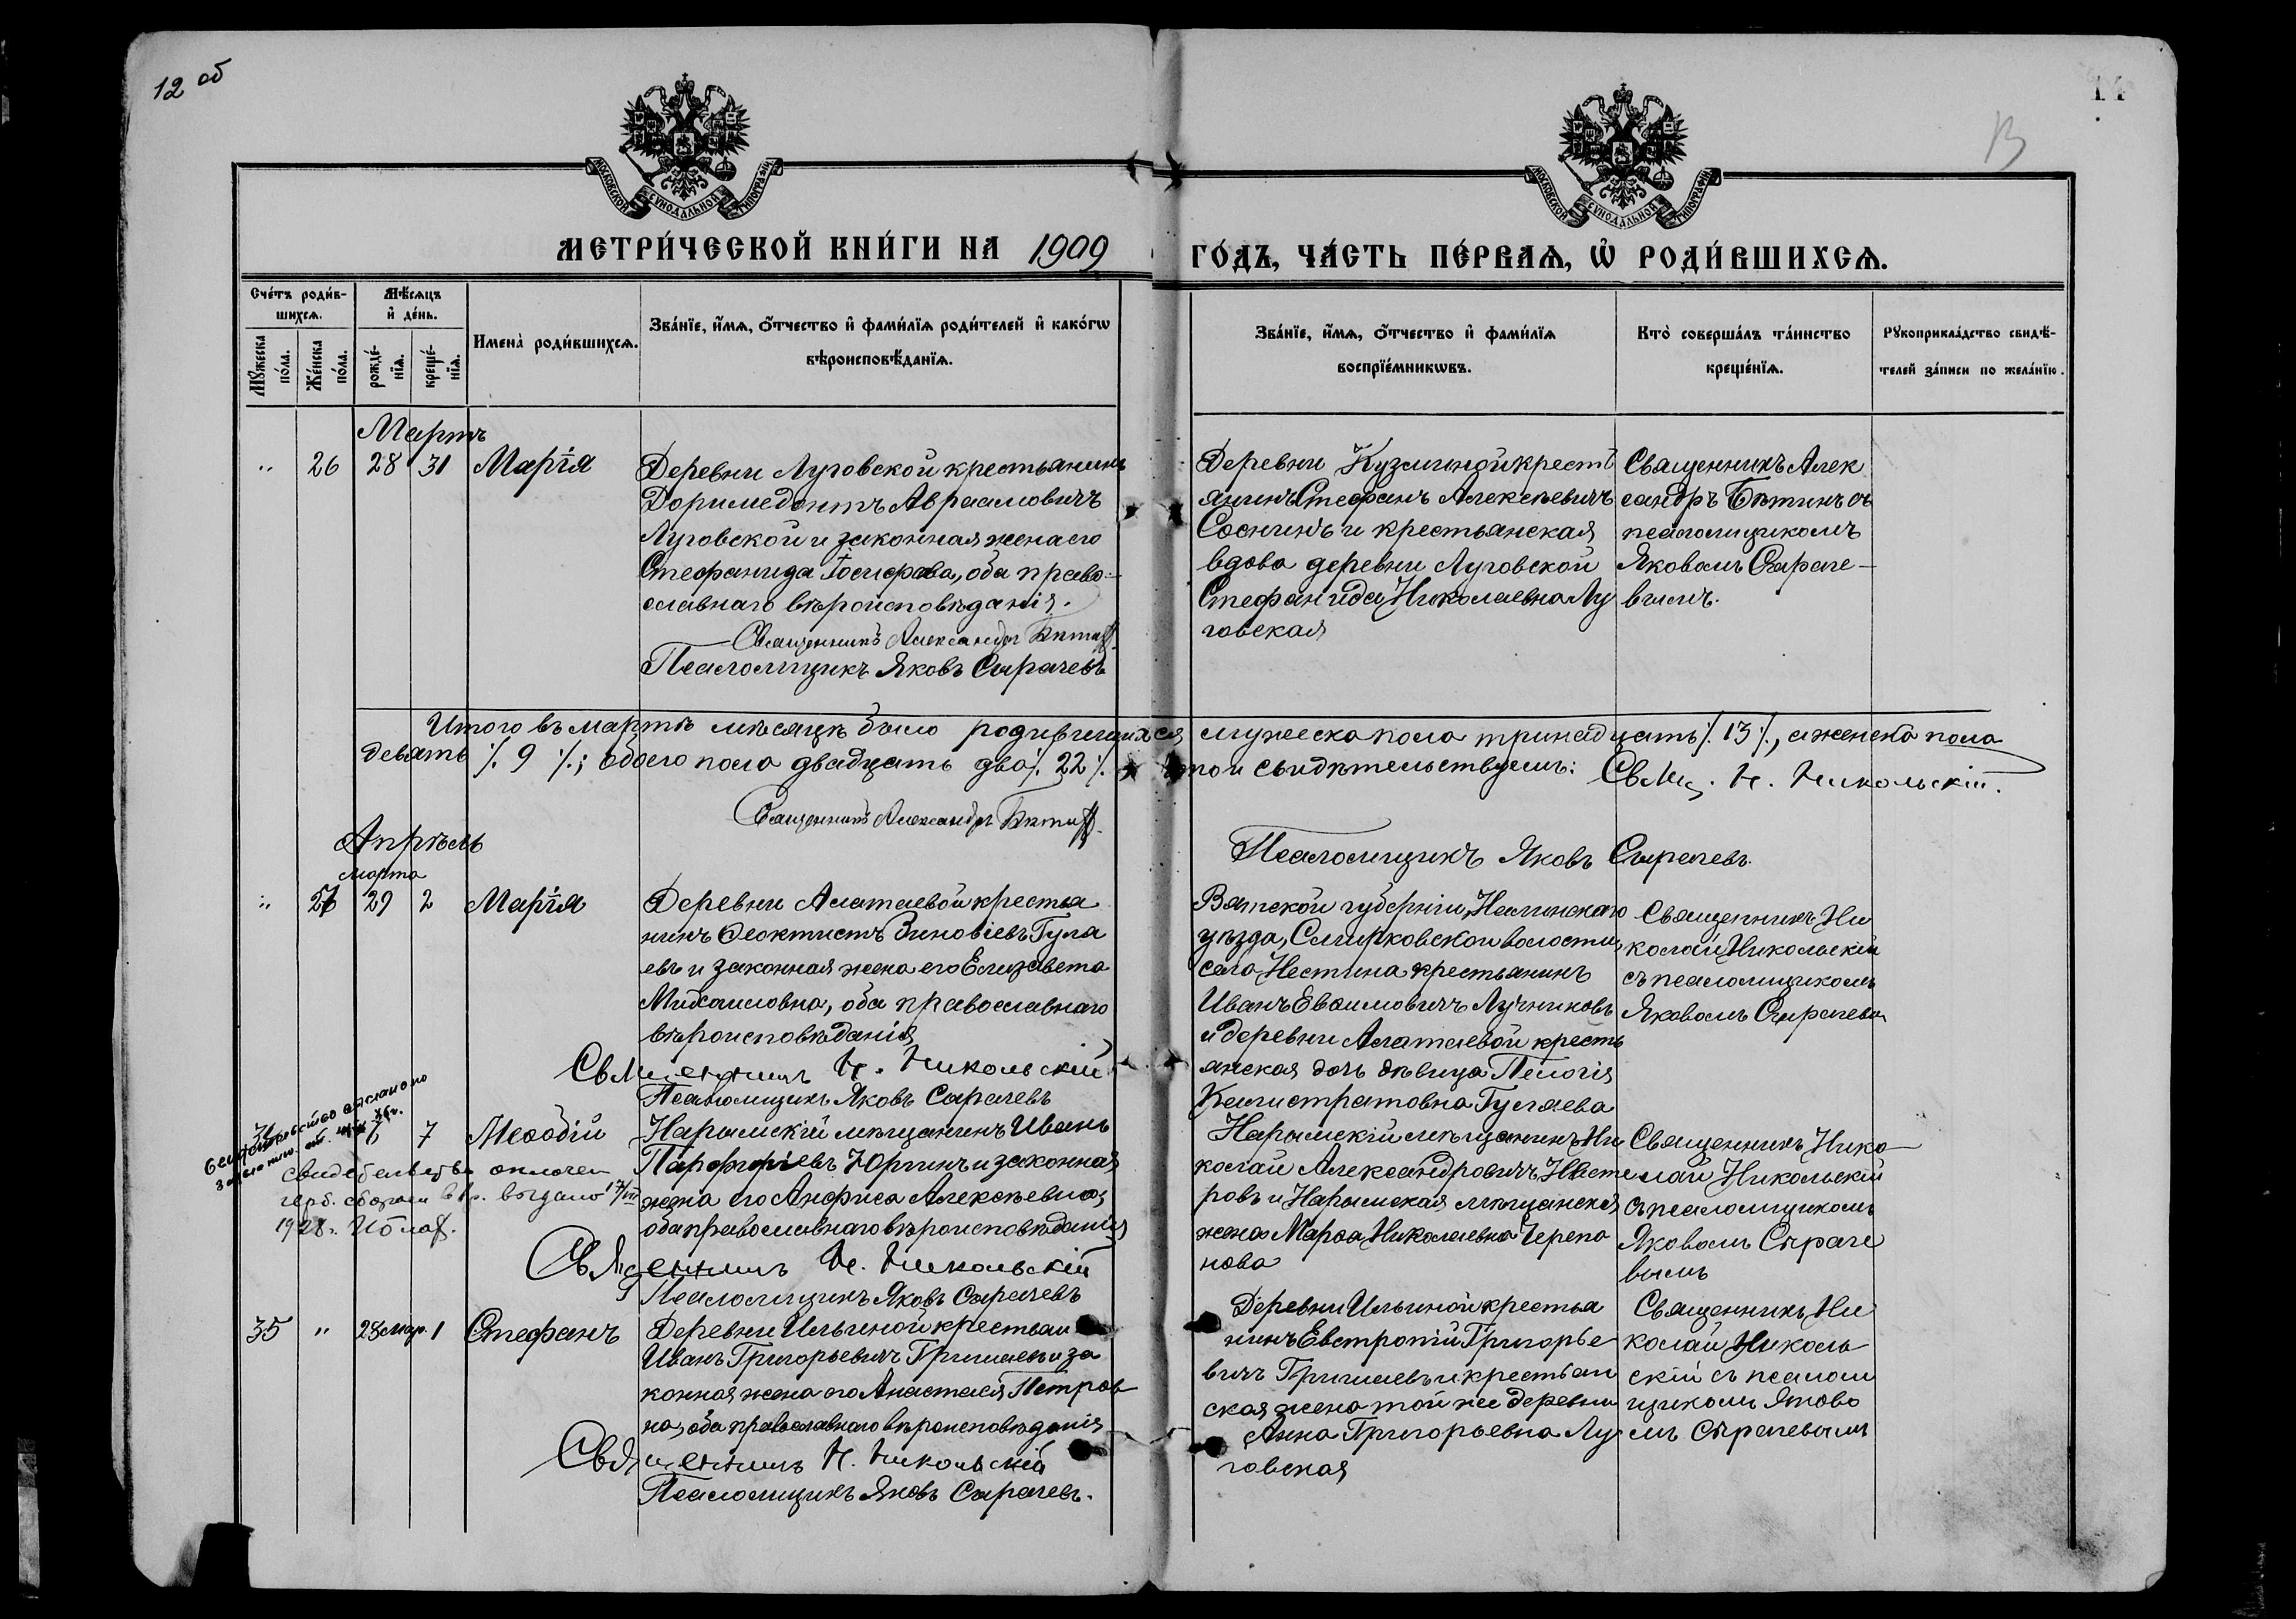 12 об
14
13
МОСКОВСКОЙ СУНОДАЛЬНОЙ ТИПОГРАФІИ
МОСКОВСКОЙ СУНОДАЛЬНОЙ ТИПОГРАФІИ
МЕТРИ́ЧЕСКОЙ КНИ́ГИ НА 1909
ГО́ДЪ, ЧА́СТЬ ПЕ́РВАѦ, Ѡ҆ РОДИ́ВШИХСѦ.
Сче́тъ роди́в-
шихсѧ.
Мꙋ́жеска
по́ла.
Же́нска
по́ла.
Мѣ́сѧцъ
и҆ де́нь.
рожде́-
нїѧ.
креще́-
нїѧ.
Имена̀ роди́вшихсѧ.
Зва́нїе, и҆́мѧ, ѻ҆́тчество и҆ фами́лїѧ роди́телей и҆ како́гѡ
вѣроисповѣ́данїѧ.
Зва́нїе, и҆́мѧ, ѻ҆́тчество и҆ фами́лїѧ
воспрїе́мникѡвъ.
Кто̀ соверша́лъ та́инство
креще́нїѧ.
Рꙋкоприкла́дство свидѣ́-
телей за́писи по жела́нїю.
Мартъ
" 26 28 31 Марія
Деревни Луговской крестьянинъ
Доримедонтъ Авраамовичъ
Луговской и законная жена его
Стефанида Іосифова, оба право-
славнаго вѣроисповѣданія.
Священникъ Александръ Бѣтинъ
Псаломщикъ Яковъ Сырачевъ
Деревни Кузьминой кресть
янинъ Стефанъ Алексѣевичъ
Соснинъ и крестьянская
вдова деревни Луговской
Стефанида Николаевна Лу
говская
Священникъ Алек
сандръ Бѣтинъ съ
псаломщикомъ
Яковомъ Сыраче-
вымъ.
Итого въ мартѣ мѣсяцѣ было родившихся мужеска пола тринадцать ⁒ 13 ⁒, а женска пола
девять ⁒ 9 ⁒; обоего пола двадцать два ⁒ 22 ⁒ въ томъ свидѣтельствуемъ: Свящ. Н. Никольскій.
Священникъ Александръ Бѣтинъ
Псаломщикъ Яковъ Сырачевъ.
Апрѣль
марта
" 27 29 2 Марія
Деревни Алатаевой крестья
нинъ Ѳеоктистъ Зиновіевъ Гуля
евъ и законная жена его Елизавета
Михаиловна, оба православнаго
вѣроисповѣданія
Священникъ Н. Никольскій
Псаломщикъ Яковъ Сырачевъ
Вятской губерніи, Нолинскаго
уѣзда,
села крестьянинъ
Иванъ Евѳимовичъ Лучниковъ
и деревни Алатаевой кресть
янская дочь дѣвица Пелогія
Калистратовна Гуляева
Священникъ Ни
колай Никольскій
съ псаломщикомъ
Яковомъ Сырачевы
34 6 7 Меѳодій
Нарымскій мѣщанинъ Иванъ
Парфирьевъ Юргинъ и законная
жена его Анфиса Алексѣевна,
оба православнаго вѣроисповѣданія
Священникъ Н. Никольскій
Псаломщикъ Яковъ Сырачевъ
Нарымскій мѣщанинъ Ни
колай Александровичъ Несте
ровъ и Нарымская мѣщанская
жена Марѳа Николаевна Черепа
нова
Священникъ Нико
лай Никольскій
съ псаломщикомъ
Яковомъ Сыраче
вымъ
свидетельство оплачен
герб. сбором в 1 р. выдано
1928 г.
35 " 28 мар. 1 Стефанъ
Деревни Ильиной крестьян
Иванъ Григорьевичъ Гришаевъ и за
конная жена его Анастасія Петров
на, оба православнаго вѣроисповѣданія
Священникъ Н. Никольскій
Псаломщикъ Яковъ Сырачевъ.
Деревни Ильиной крестья
нинъ Евстропій Григорье
вичъ Гришаевъ и крестьян
ская жена той же деревни
Анна Григорьевна Лу
говская
Священникъ Ни
колай Николь
скій съ псалом
щикомъ Яково
мъ Сырачевымъ